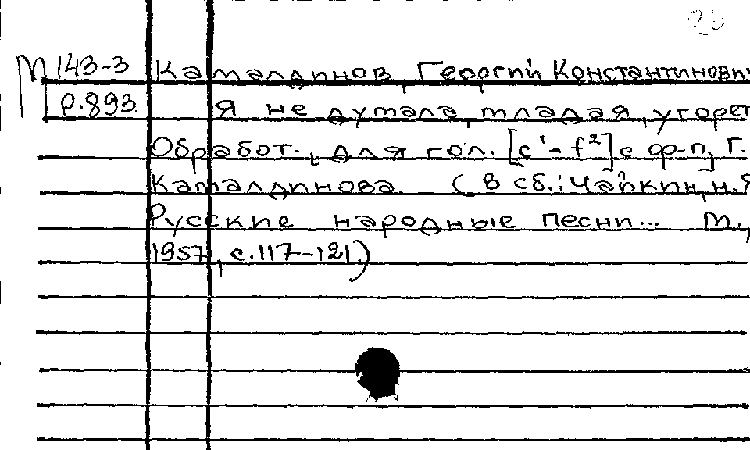 М 143-3 Камалдинов, Георгий Константинович
р.893. Я не думала, младая, угорет
Обработ. для гол. [c¹-f²] с ф-п. Г.
Камалдинова. (В сб.: Чайкин, Н.Я
Русские народные песни... М.,
1957, с.117-121.)